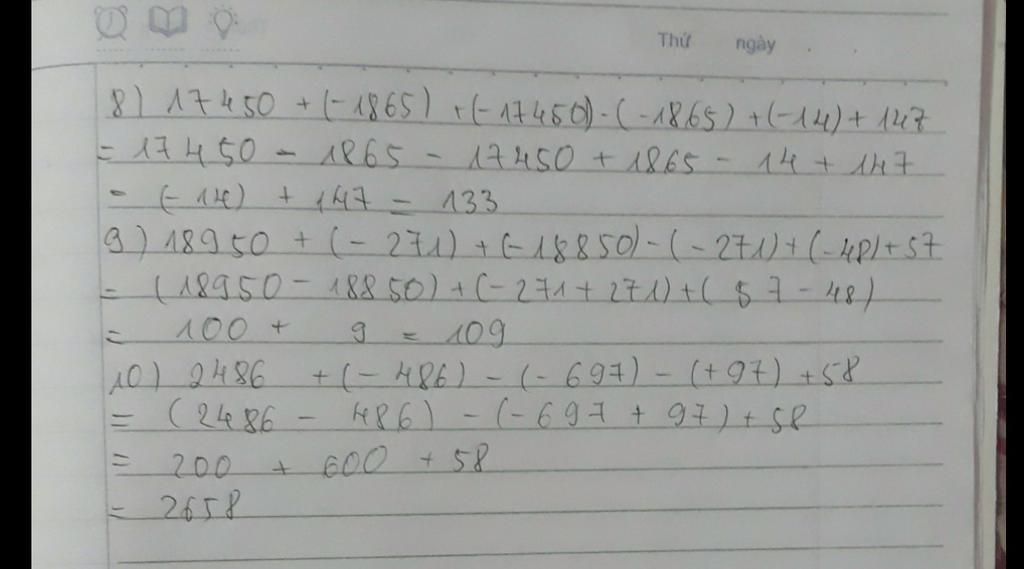 Thứ ngày . .
8) 17450 + (-1865) + (-17450) - (-1865) + (-14) + 147
= 17450 - 1865 - 17450 + 1865 - 14 + 147
= (-14) + 147 = 133
9) 18950 + (-271) + (-18850) - (-271) + (-48) + 57
= (18950 - 18850) + (-271 + 271) + (57 - 48)
= 100 + 9 = 109
10) 2486 + (-486) - (-697) - (+97) + 58
= (2486 - 486) - (-697 + 97) + 58
= 200 + 600 + 58
= 2658